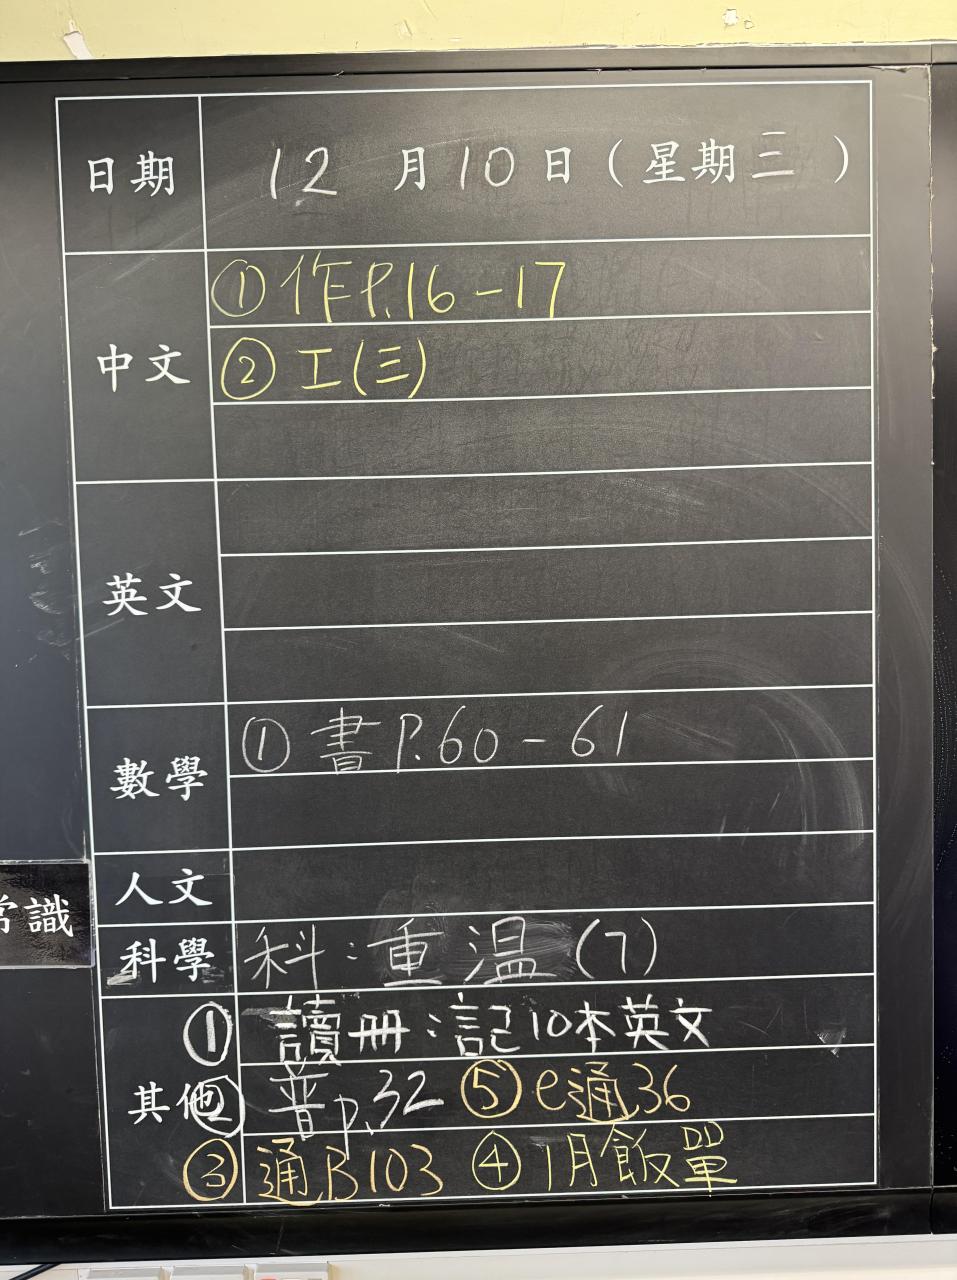 日期 12月10日（星期三）
中文 ①作P.16-17
②工(三)
英文
數學 ①書P.60-61
人文
常識
科學 科：重溫(7)
其他 ①讀冊：記10本英文
②普p.32 ⑤e通36
③通B103 ④1月飯單